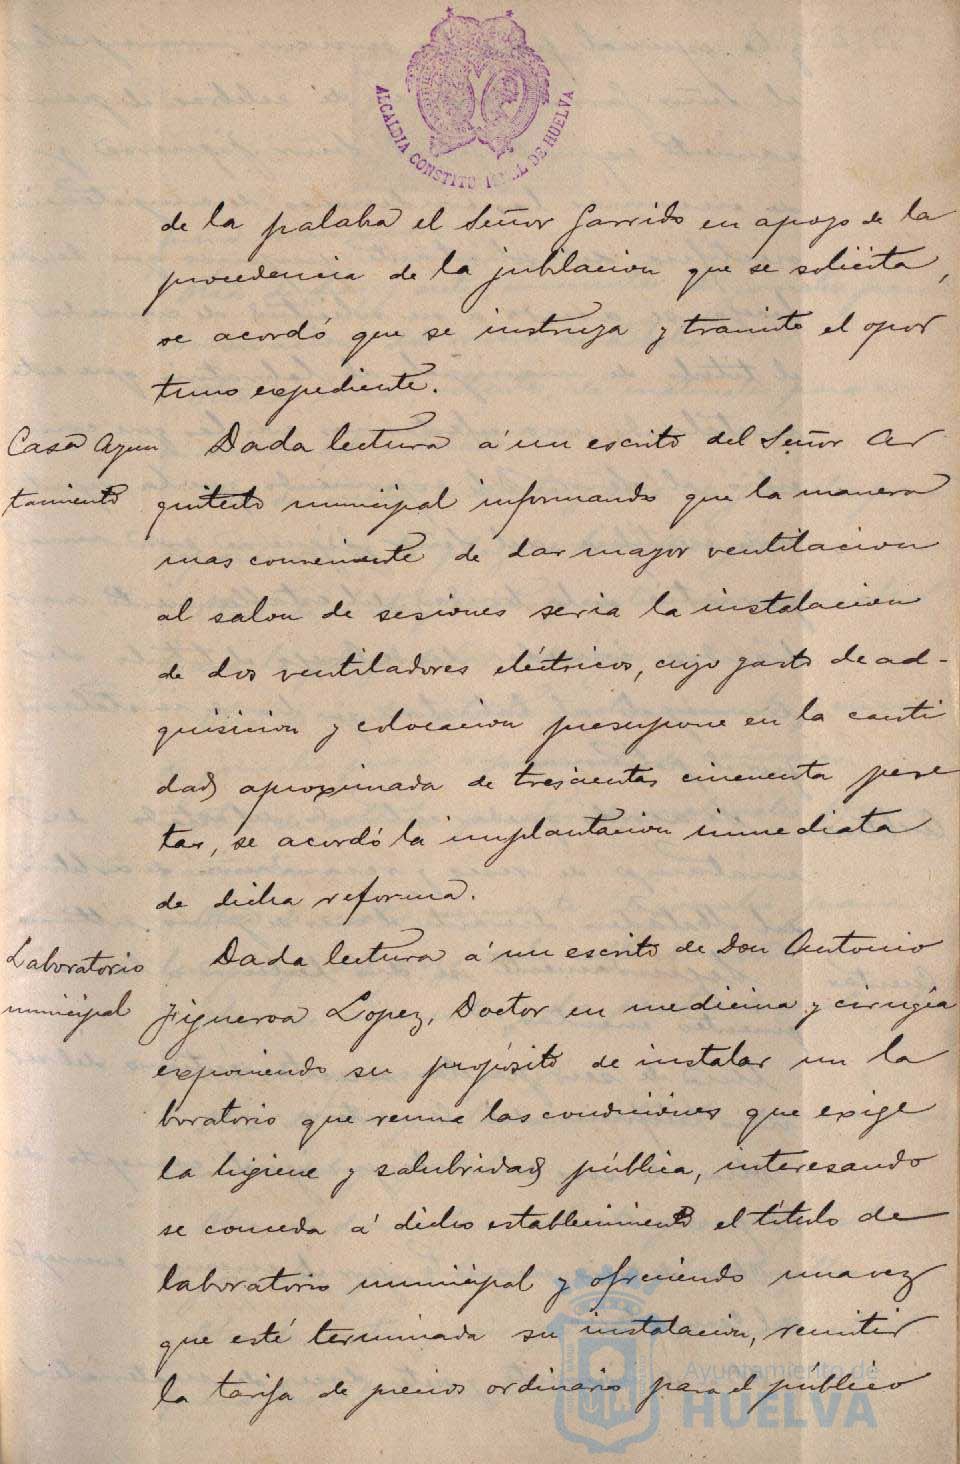 ALCALDIA CONSTITUCIONAL DE HUELVA
de la palabra el Señor Garrido en apoyo de la
procedencia de la jubilacion que se solicita,
se acordó que se instruya y tramite el opor
tuno expediente.
Casa Ayun
tamiento
Dada lectura á un escrito del Señor Ar
quitecto municipal informando que la manera
mas conveniente de dar mayor ventilacion
al salon de sesiones seria la instalacion
de dos ventiladores eléctricos, cuyo gasto de ad-
quisicion y colocacion presupone en la canti
dad aproximada de trescientas cincuenta pese
tas, se acordó la implantacion inmediata
de dicha reforma.
Laboratorio
municipal
Dada lectura á un escrito de Don Antonio
Figueroa Lopez, Doctor en medicina y cirugía
exponiendo su propósito de instalar un la
boratorio que reuna las condiciones que exige
la higiene y salubridad pública, interesando
se conceda á dicho establecimiento el título de
laboratorio municipal y ofreciendo una vez
que esté terminada su instalacion, remitir
la tarifa de precios ordinario para el público
Ayuntamiento de
HUELVA